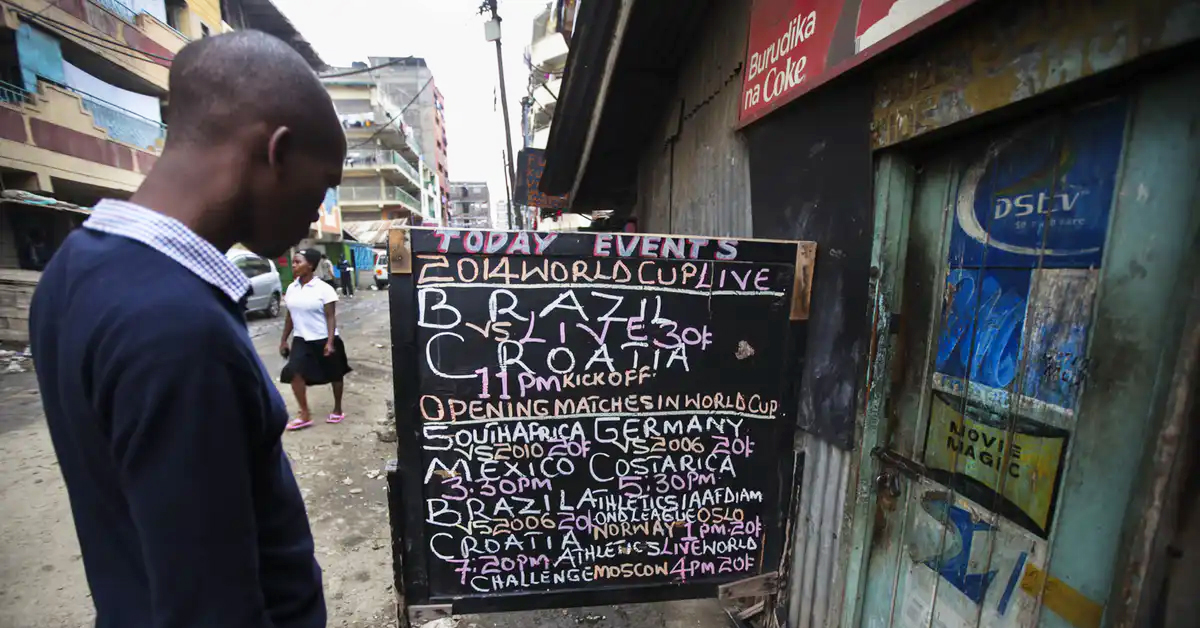 TODAY EVENTS
2014 WORLD CUP LIVE
BRAZIL
VS LIVE 30/=
CROATIA
11PM KICK OFF
OPENING MATCHES IN WORLD CUP
SOUTH AFRICA
VS 2010 20/=
MEXICO
3.30PM
BRAZIL
VS 2006 20/=
CROATIA
7.20PM
GERMANY
VS 2006 20/=
COSTARICA
5.30PM
ATHLETICS IAAF DIAM
OND LEAGUE OSLO
NORWAY 1PM 20/=
ATHLETICS LIVE WORLD
CHALLENGE MOSCOW 4PM 20/=
Burudika
na Coke
DStv
so much more
MOVIE
MAGIC